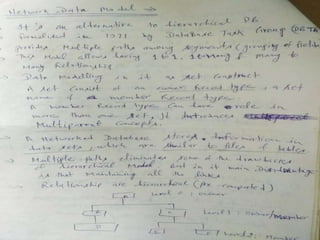 Network Data Model →
→ It is an alternative to hierarchical DB
formulated in 1971 by DataBase Task Group (DBTG)
provides Multiple paths among segments (grouping of fields)
→ This Model allows having 1 to 1, 1 to many & many to
many Relationship.
→ Data Modelling in it as set construct
A set consist of an owner Record type, a set
name & a member Record type.
A member Record type can have role in
more than one set, it
Multiparent concepts.
→ A Networked Database stores Information in
data sets, which are similar to files & tables
→ Multiple paths eliminates some of the drawbacks
of hierarchical Model but its main Disadvantage
is that Maintaining all the links
Relationship are hierarchical
level 0: owner
level 1: owner/member
level 2: member